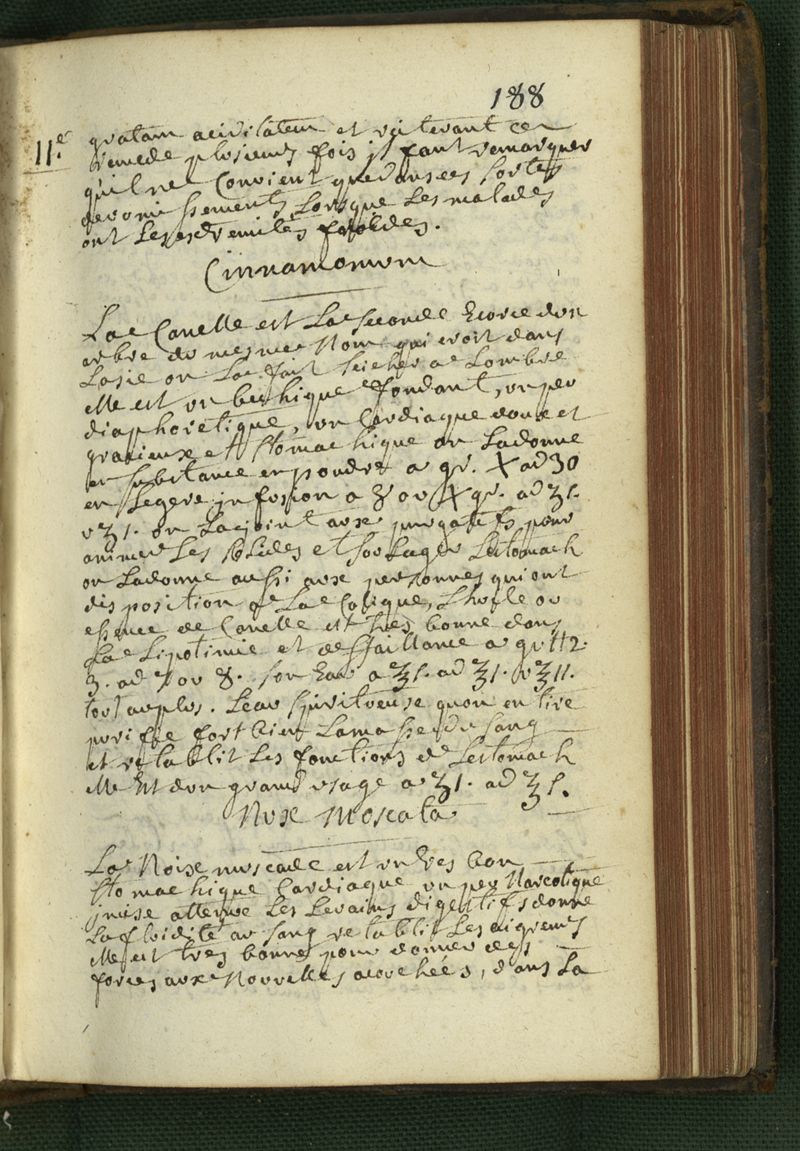 188
11e.
gratam aciditatem et reiterant ce
remede plusieurs fois j faut remarquer
quil ne Convient que dans ces sortes
de vomissements Lorsque Les malades
ont Les extremités froides.
Cinnamomum
La Canelle est La seconde Ecorce dun
arbre du mesme Nom qui croit dans
Lasie on La fait seicher a Lombre
elle est un bechique fondant, un peu
diaphoretique, un Cardiaque doux et
gracieux et stomachique on Ladonne
en substance en poudre a gr. X ad 30
en Legere jnfusion a Ʒ ou X gr. ad Ʒſ.
v Ʒ1. on Lajoint aux purgatifs pour
animer Les solides et soulager Lestomach
on Ladonne aussi aux personnes qui ont
disposition a La Colique, Lhuile ou
essence de Canelle est tres bonne dans
La Lipotimie et deffaillance a gtt 2
3. ad 7 ou 8. son Eau a ℥ſ. ad ℥1. v ℥11.
tout auplus. Leau spiritueuse quon en tire
purifie fort bien La masse du sang
et retablit Les fonctions de Lestomach
elle Est dun grand usage a Ʒ1. ad ℥ſ.
Nux Moscata
La Noix muscade est un tres bon
stomachique Cardiaque un peu Narcotique
jncise attenue Les Levains digestifs donne
La fluidité au sang retablit Les aigreurs
elle est tres bonne pour donner des
forces aux Nouvelles acouchées, dans La